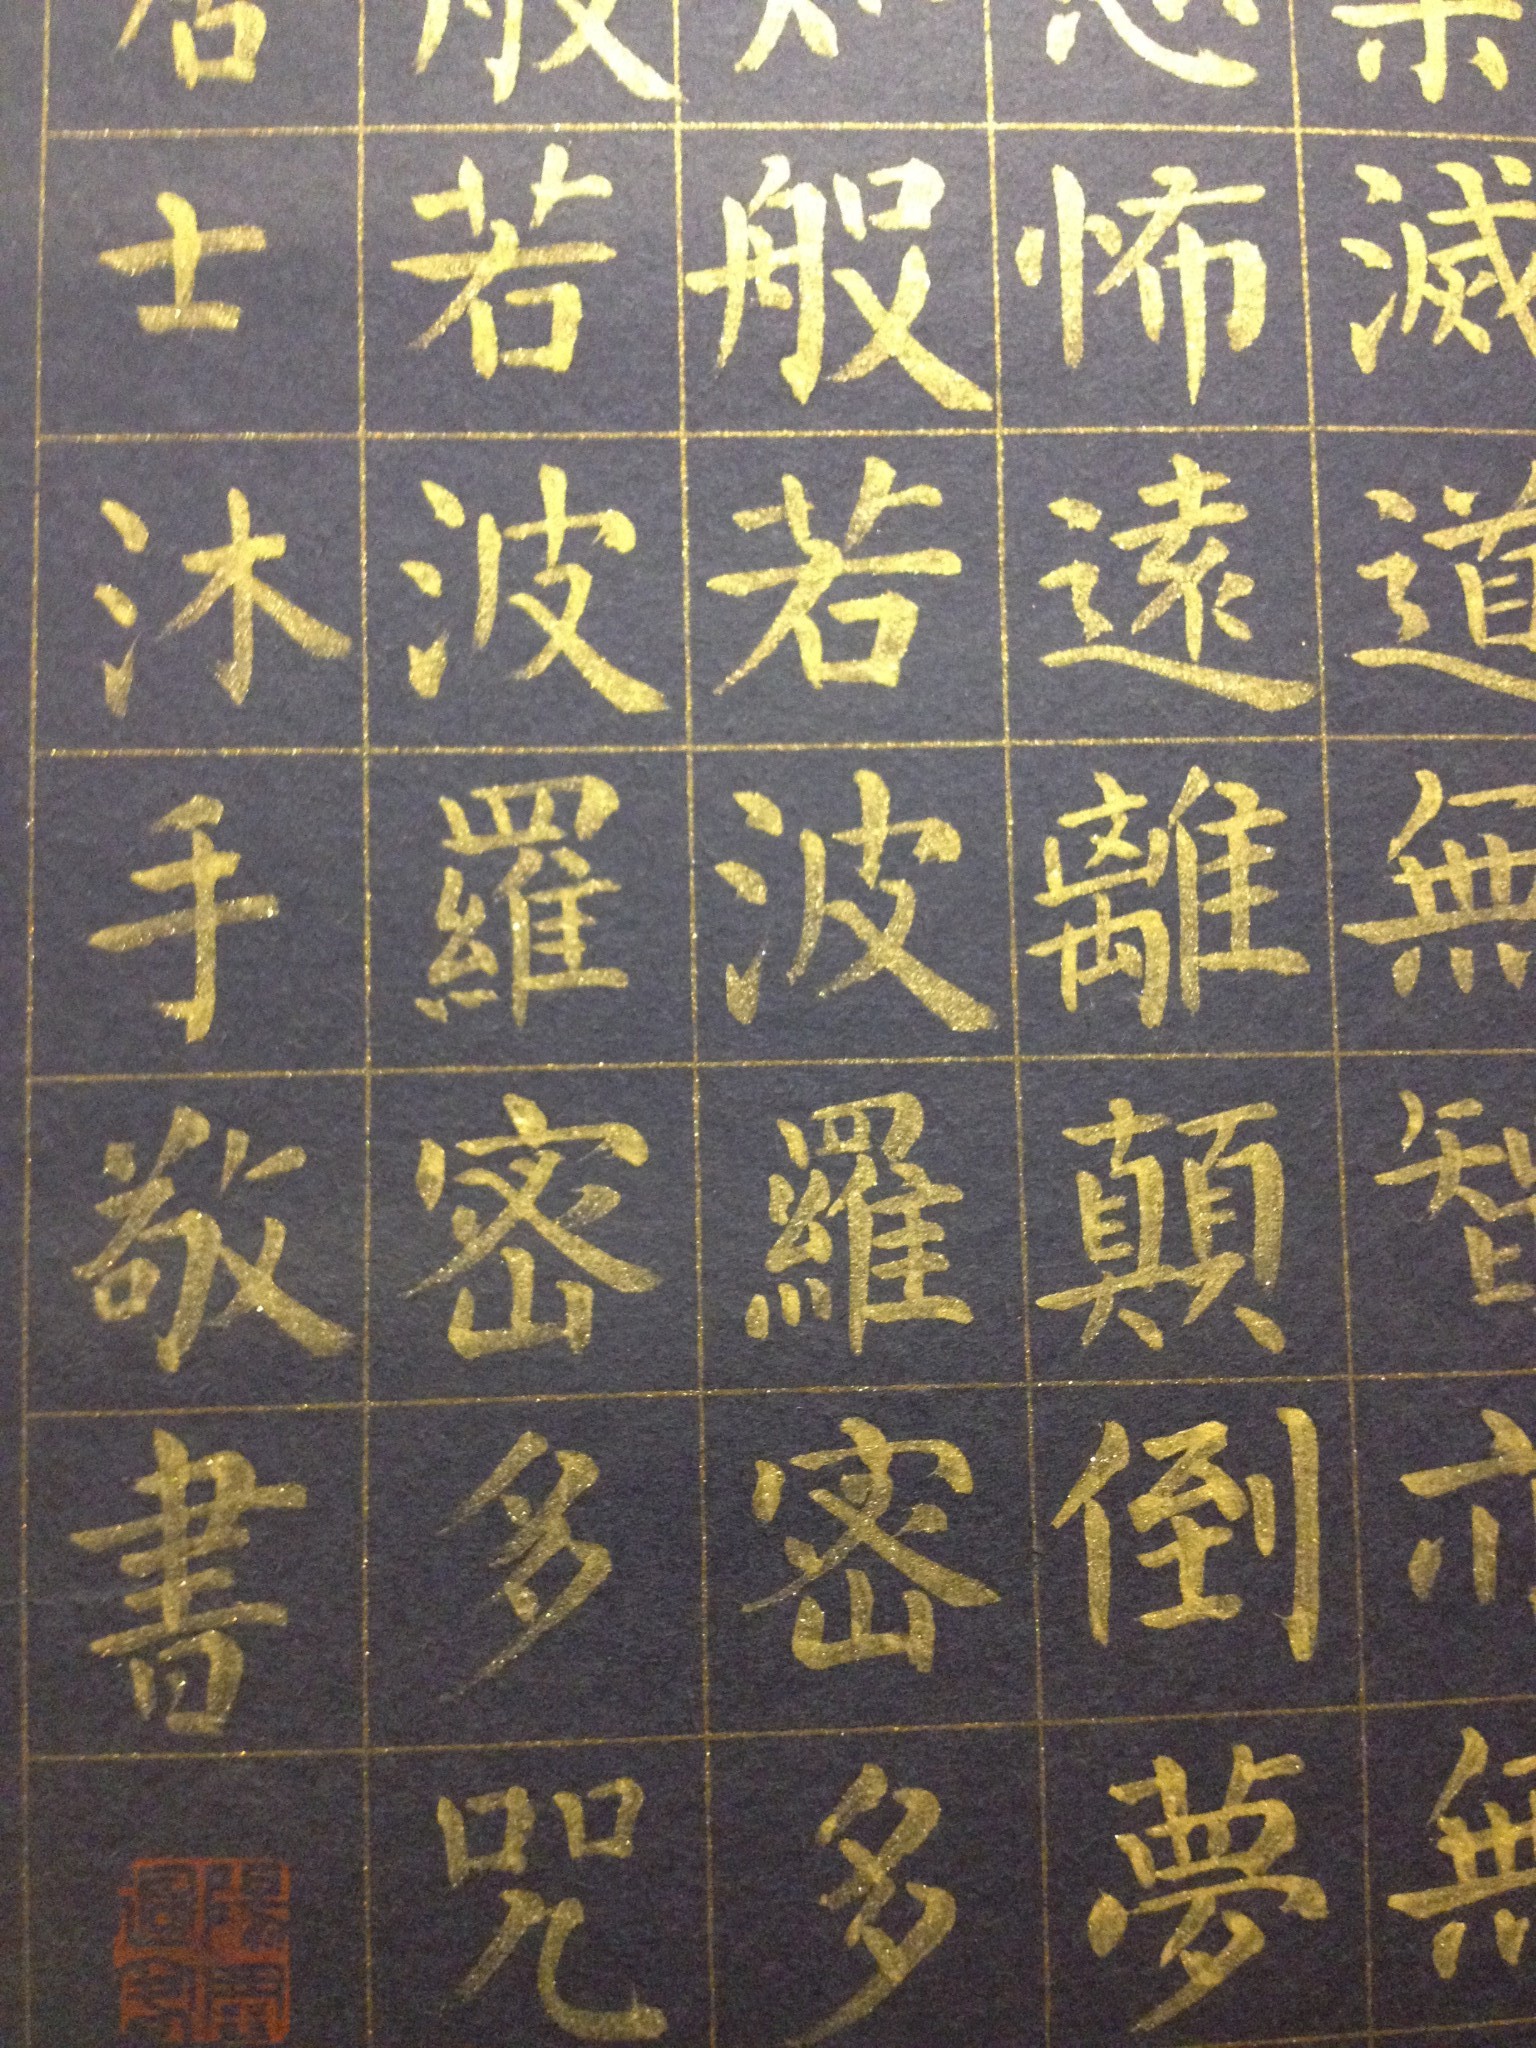 滅道無智亦無
怖遠離顛倒夢
般若波羅密多
般若波羅密多咒
居士沐手敬書